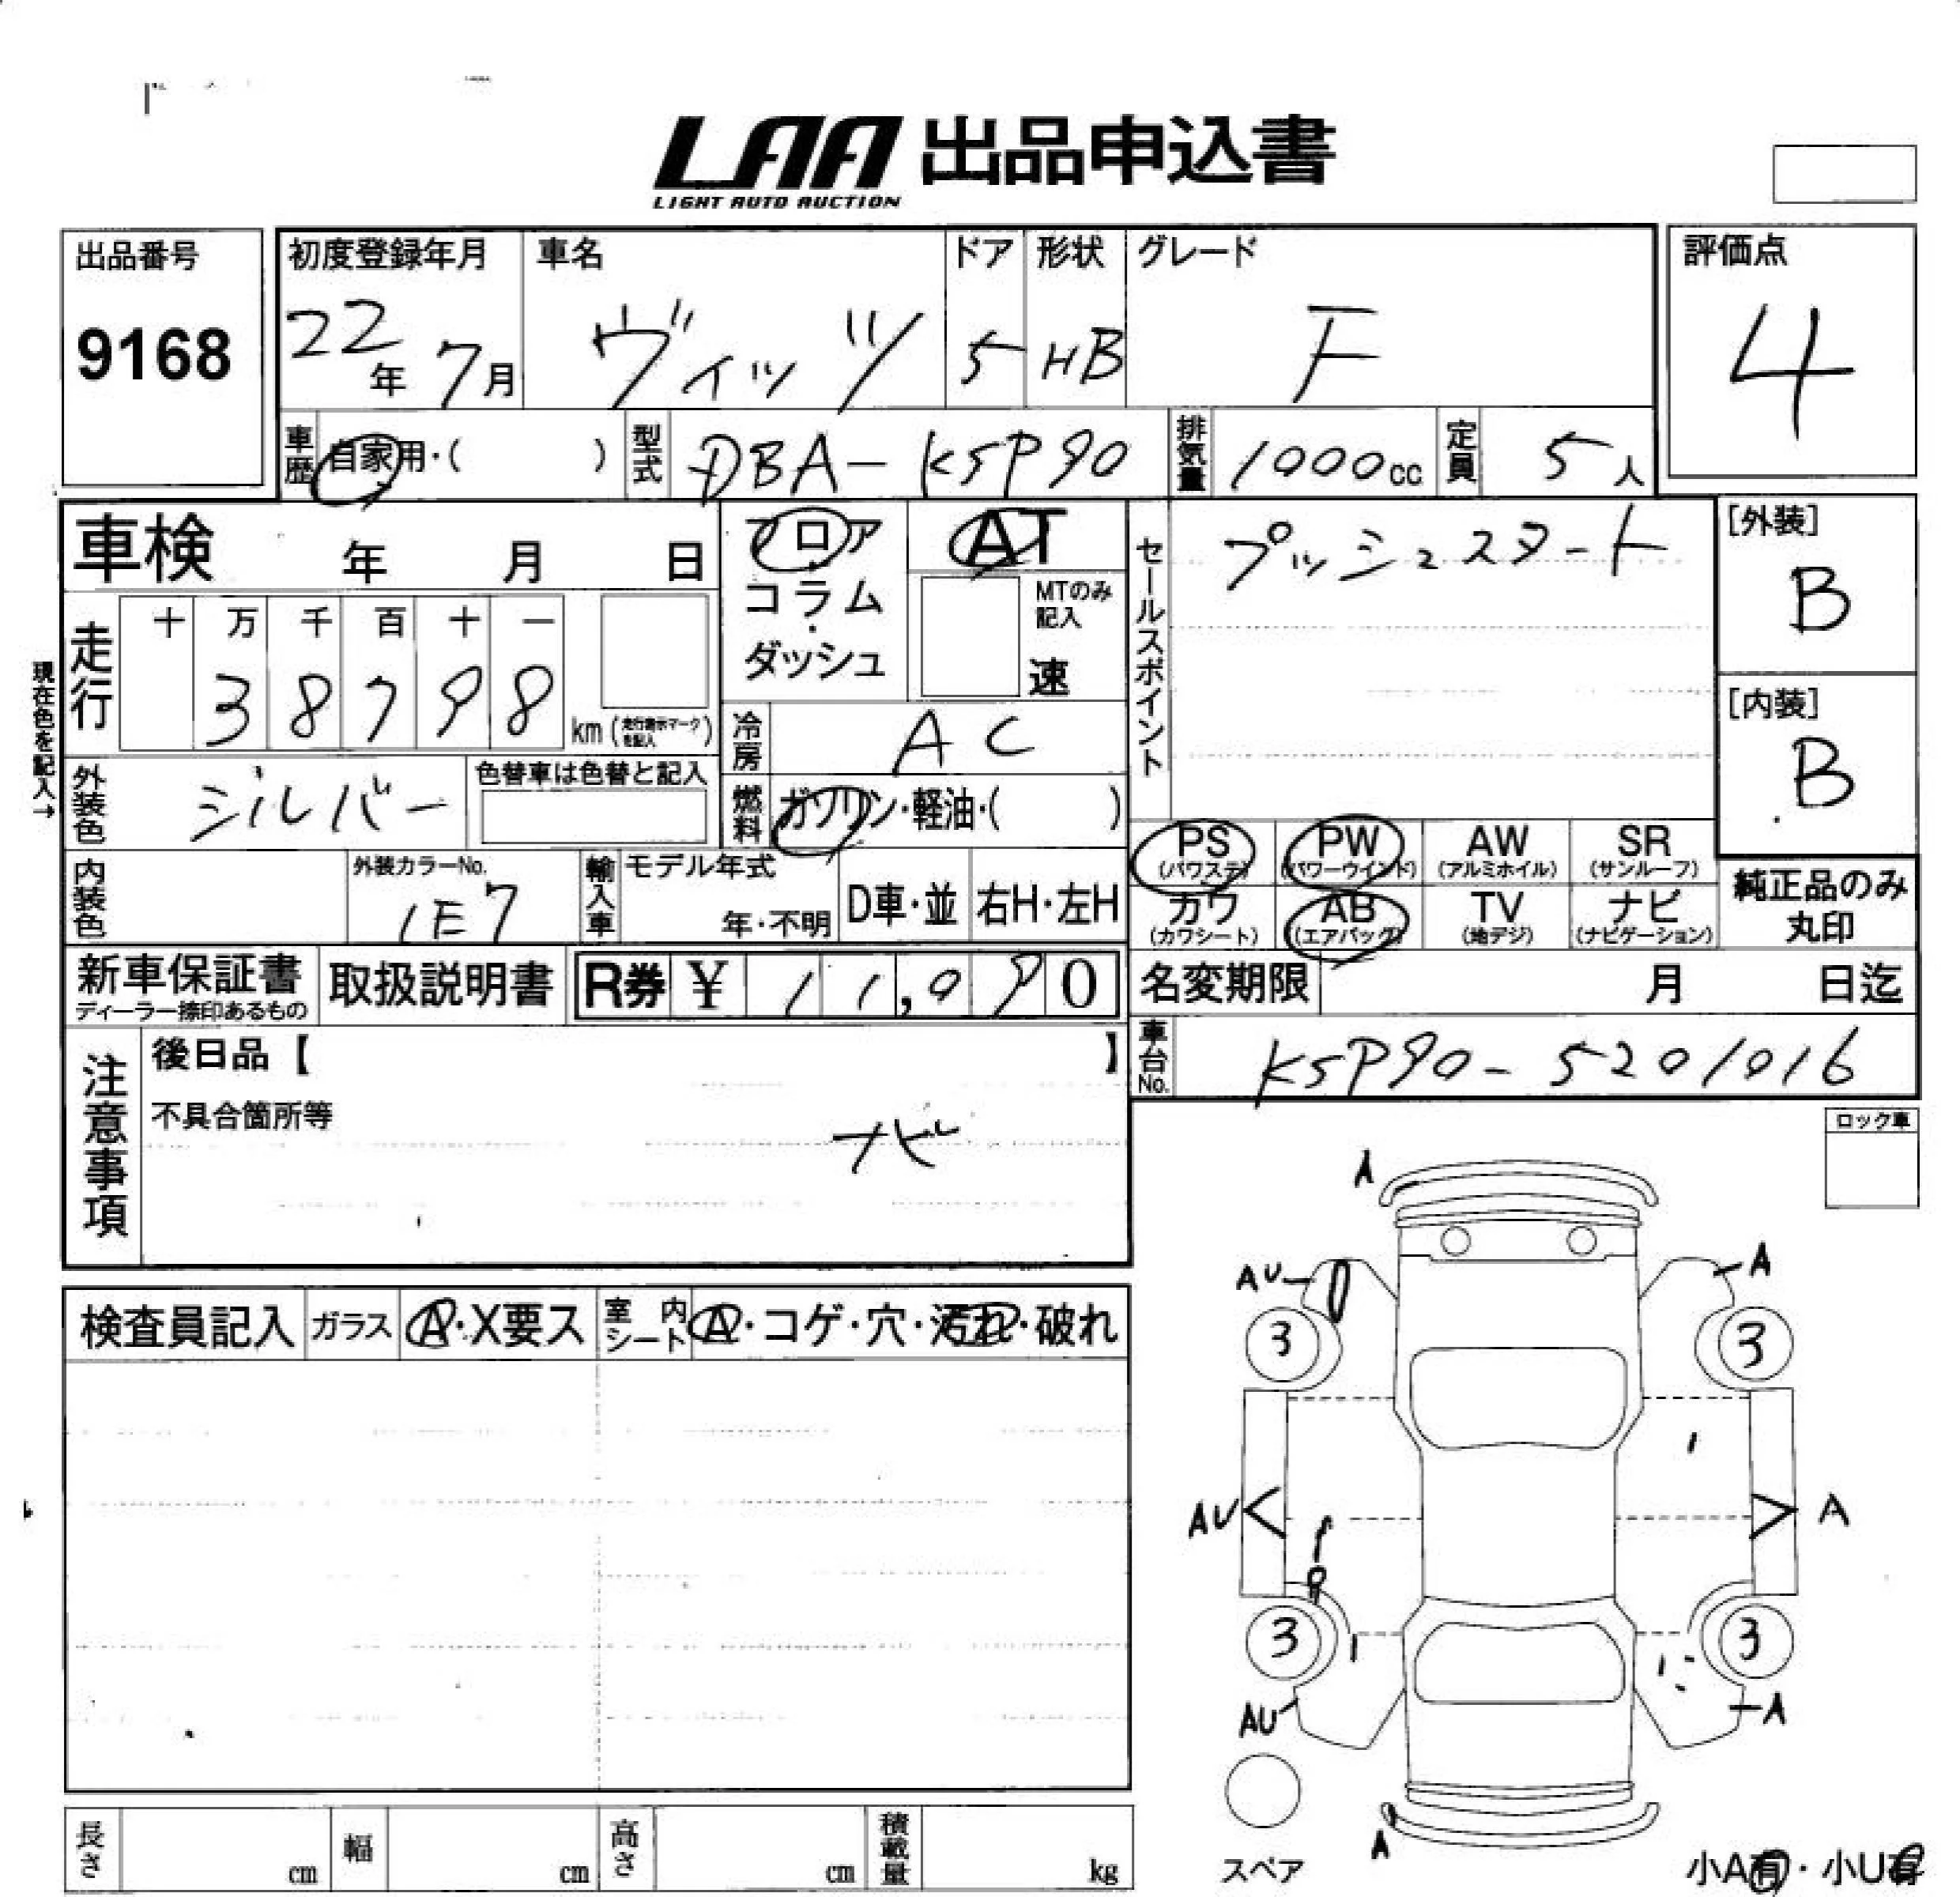 LAA 出品申込書
LIGHT AUTO AUCTION
出品番号
9168
初度登録年月
22年 7月
車名
ヴィッツ
ドア
5
形状
HB
グレード
F
評価点
4
車歴 自家用・( )
型式 DBA-KSP90
排気量 1000cc
定員 5人
車検 年 月 日
現在色を記入→
走行
十 万 千 百 十 一
3 8 7 9 8
km (走行表示マークを記入)
外装色 シルバー
色替車は色替と記入
内装色
外装カラーNo.
1E7
フロア
・
コラム
・
ダッシュ
AT
MTのみ
記入
速
冷房 AC
燃料 ガソリン・軽油・( )
輸入車 モデル年式
年・不明
D車・並
右H・左H
セールスポイント
プッシュスタート
[外装]
B
[内装]
B
PS
(パワステ)
PW
(パワーウインド)
AW
(アルミホイル)
SR
(サンルーフ)
カワ
(カワシート)
AB
(エアバッグ)
TV
(地デジ)
ナビ
(ナビゲーション)
純正品のみ
丸印
新車保証書
ディーラー捺印あるもの
取扱説明書
R券 ¥ 11,090
名変期限 月 日迄
車台No. KSP90-5201016
注意事項
後日品【 】
不具合箇所等
ナビ
ロック車
検査員記入
ガラス A・X要ス
室内シート A・コゲ・穴・汚れ・破れ
A
AU
A
3
3
AU
A
3
3
AU
A
A
スペア
小A有・小U有
長さ cm
幅 cm
高さ cm
積載量 kg